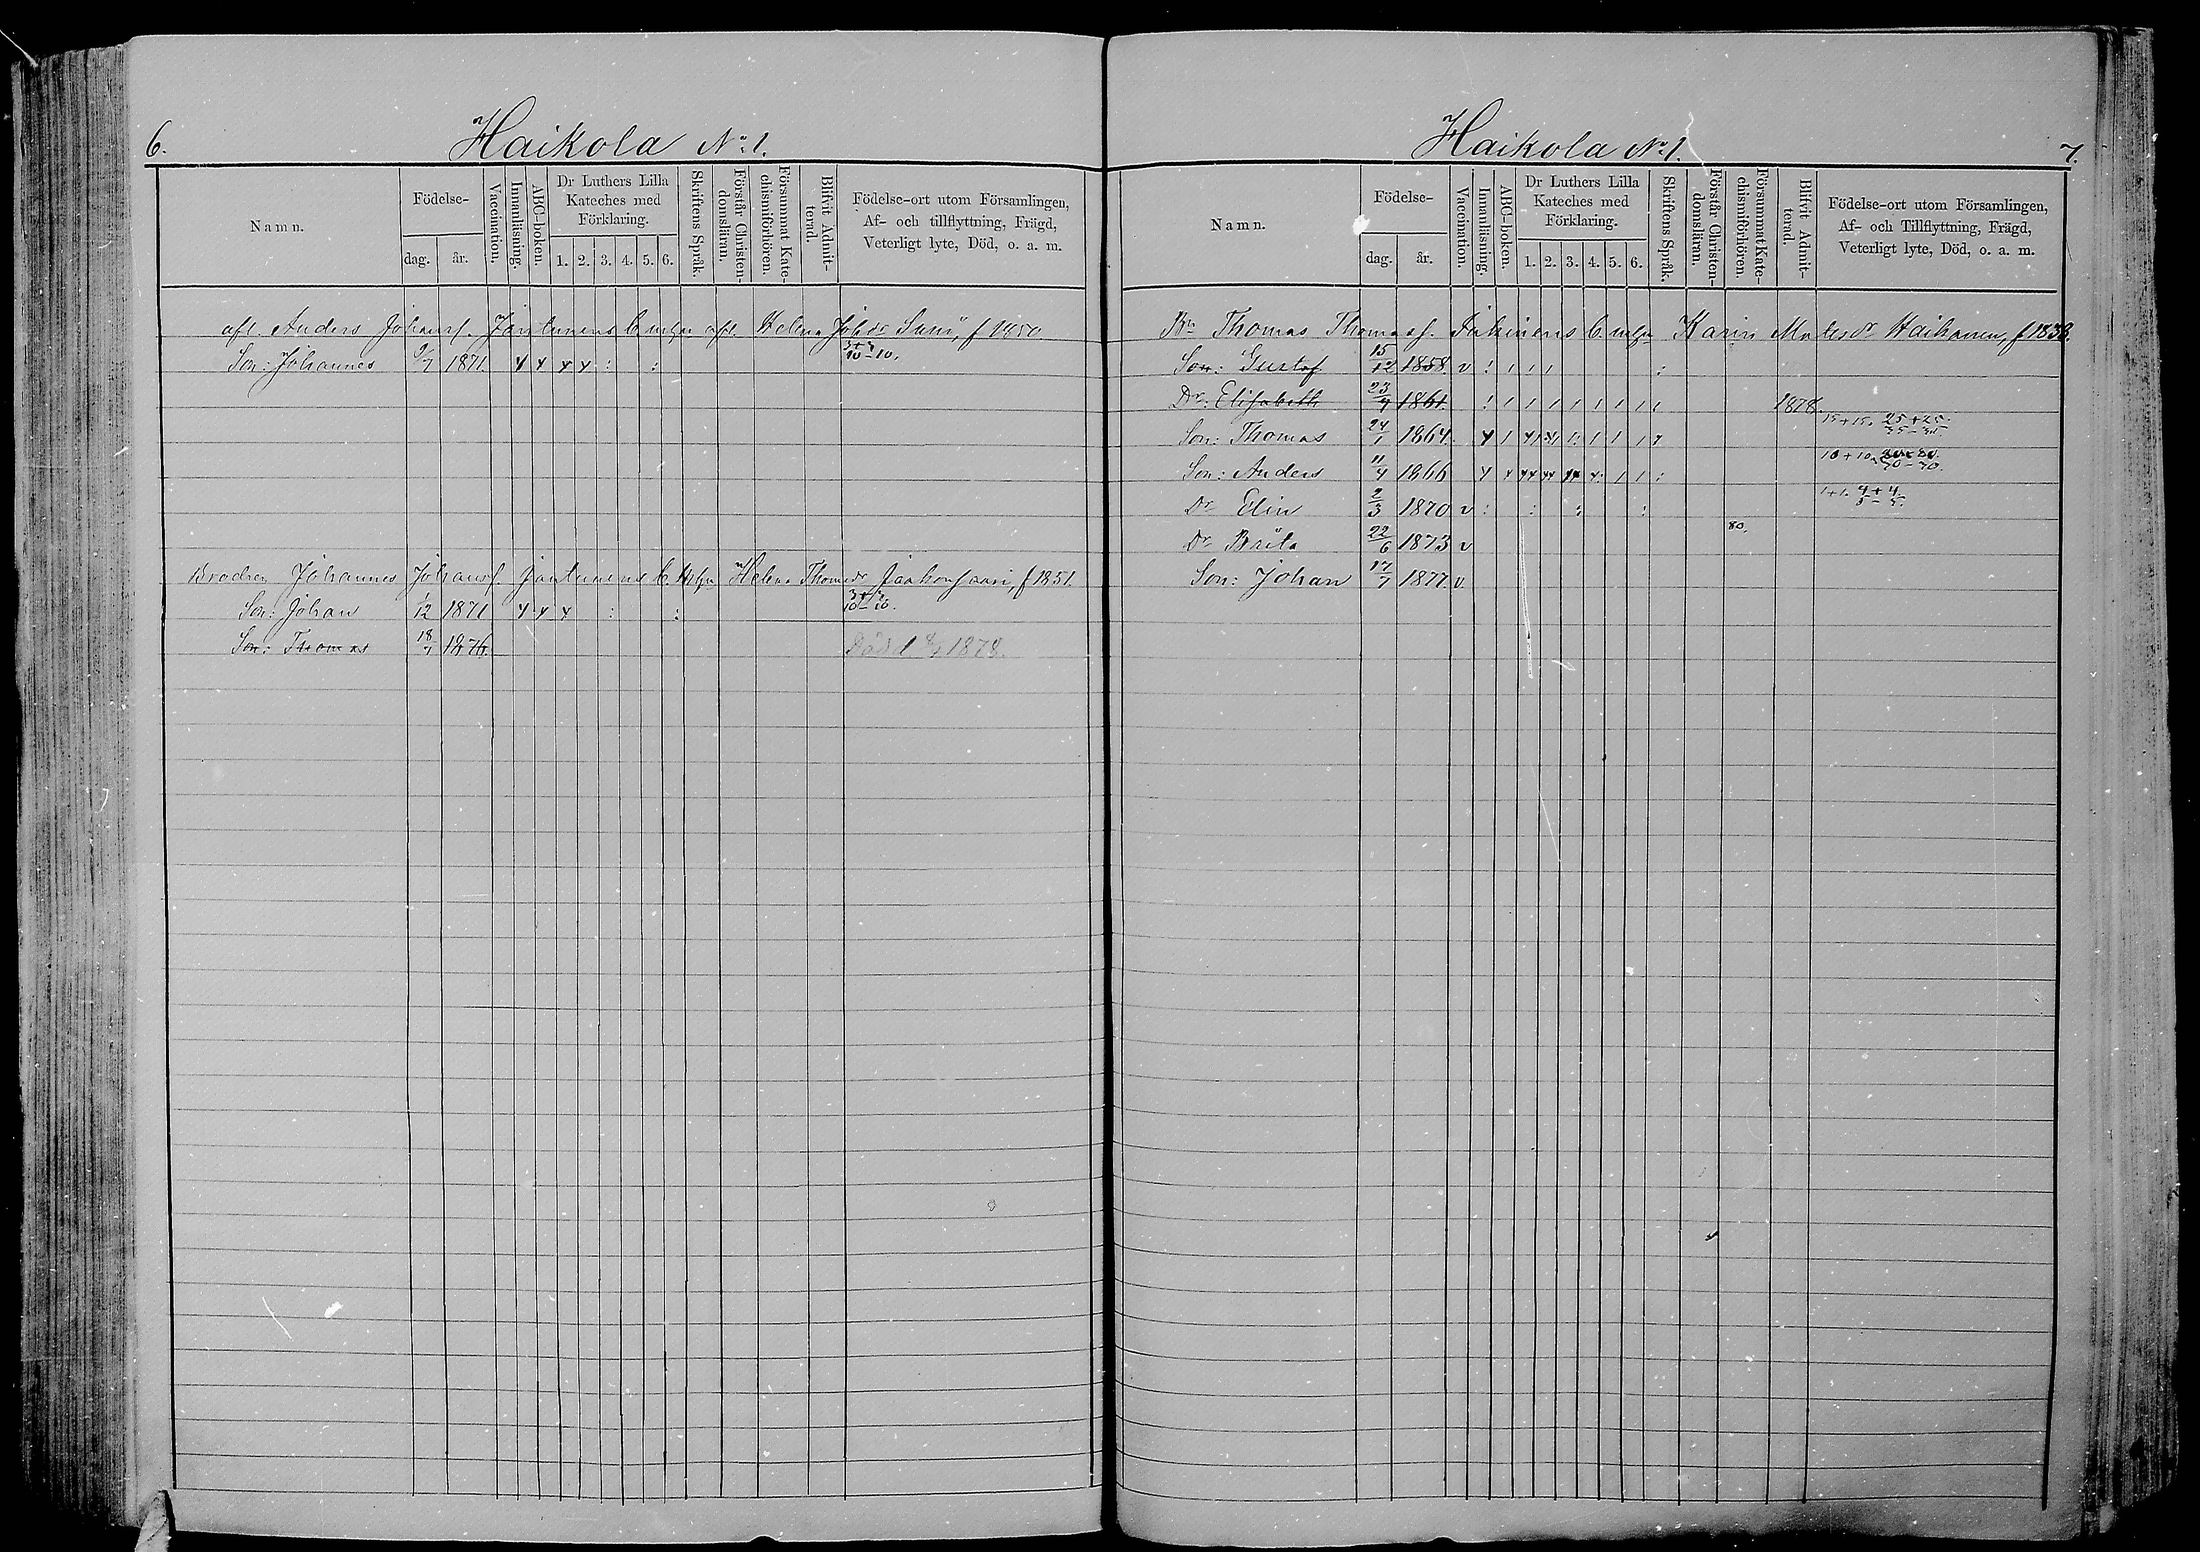 6.
Haikola No 1.
Namn.
Födelse-
dag.
år.
Vaccination.
Innanläsning.
ABC-boken.
Dr Luthers Lilla
Kateches med
Förklaring.
1. 2. 3. 4. 5. 6.
Skriftens Språk.
Förstår Christen-
domsläran.
Försummat Kate-
chismiförhören.
Blifvit Admit-
terad.
Födelse-ort utom Församlingen,
Af- och tillflyttning, Frägd,
Veterligt lyte, Död, o. a. m.
afl. Anders Johansf. Jantunens b. m. hu afl. Helena Johdr Suni, f 1850
Son: Johannes 9/7 1871 3+3 10-10.
Brodren Johannes Johansf. Jantunens b. m hu Helena Thomdr f 1851.
Son: Johan 1/12 1871 3+3 10-10.
Son: Thomas 18/7 1876 Död 1878.
Haikola No 1.
7.
Namn.
Födelse-
dag.
år.
Vaccination.
Innanläsning.
ABC-boken.
Dr Luthers Lilla
Kateches med
Förklaring.
1. 2. 3. 4. 5. 6.
Skriftens Språk.
Förstår Christen-
domsläran.
Försummat Kate-
chismiförhören.
Blifvit Admit-
terad.
Födelse-ort utom Församlingen,
Af- och Tillflyttning, Frägd,
Veterligt lyte, Död, o. a. m.
Thomas Thomasf. b. m hu Karin Matsdr Haikonen, f 1838.
Son: Gustaf 15/12 1858 v
Dr: Elisabeth 23/9 1861. 1878
Son: Thomas 24/1 1864. 15+15. 25+25.
Son: Anders 11/4 1866 10+10.
Dr Elin 2/3 1870 v 1+1. 4+4
Dr Brita 22/6 1873 v 80.
Son: Johan 17/7 1877. v